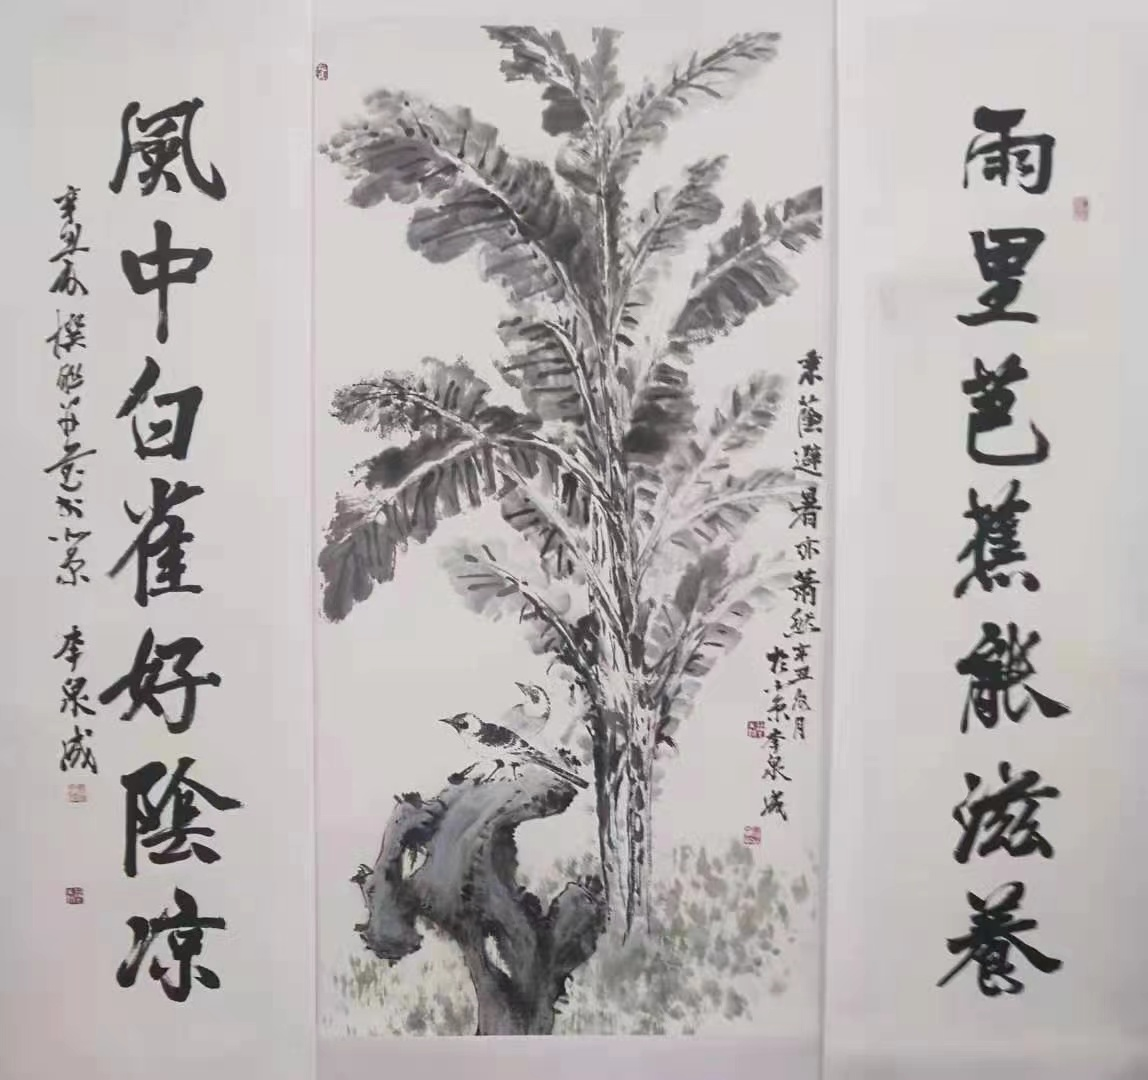 雨里芭蕉能滋養
乘蔭避暑亦萧然
辛丑夏月
於北京李泉成
風中白雀好陰凉
辛丑夏撰联并書於北京 李泉成